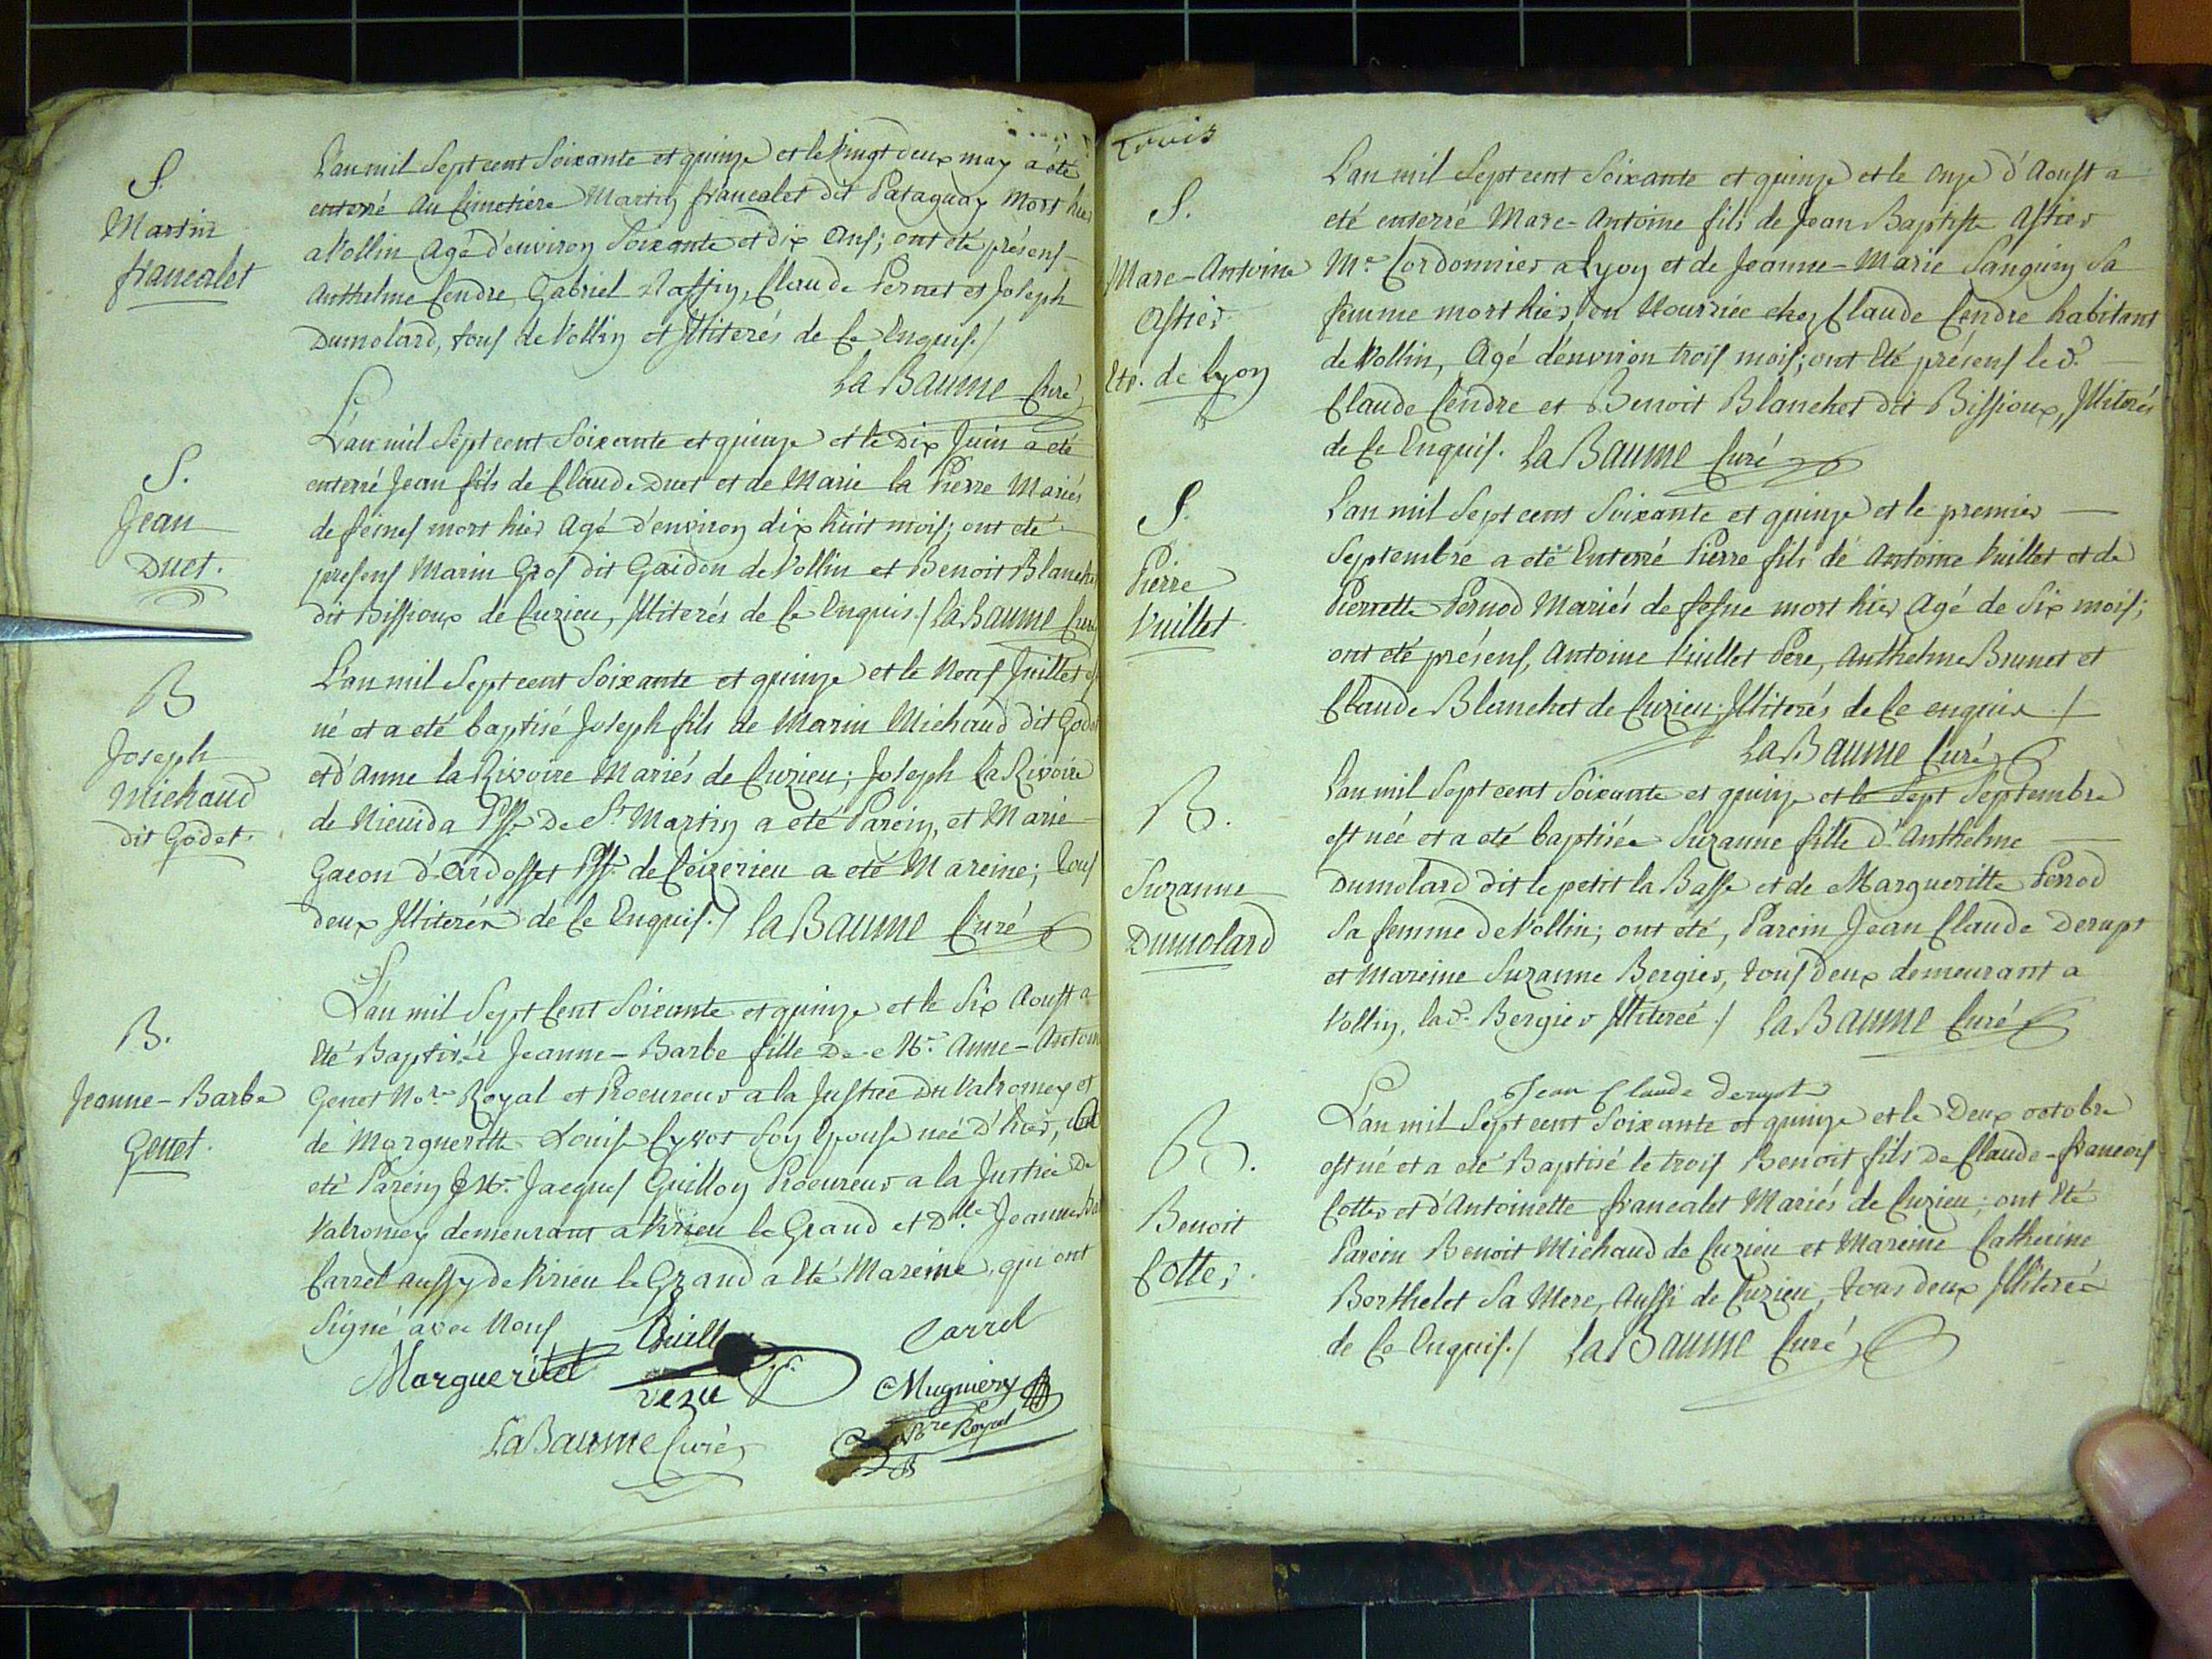 S.
Martin
francalet
L'an mil Sept cent Soixante et quinze et le vingt deux may a été
enterré au Cimetiére Martin francalet dit Pataguay mort hier
a Vollin agé d'environ Soixante et dix ans; ont été présens
Anthelme Cendre, Gabriel Raffin, Claude Pernet et Joseph
Dumolard, tous de Vollin et Illiterés de Ce Enquis./
La Baume Curé
S.
Jean
Duet.
L'an mil Sept cent Soixante et quinze et le Dix Juin a eté
enterré Jean fils de Claude Duet et de Marie la Pierre Mariés
de feines mort hier agé d'environ dix huit mois; ont eté
presens Marin Gros dit Gaidon de Vollin et Benoit Blanchet
dit Bissioux de Cuzieu, Illiterés de Ce Enquis./ La Baume Curé
B
Joseph
Michaud
dit Godet.
L'an mil Sept cent Soixante et quinze et le Neuf Juillet est
né et a eté baptisé Joseph fils de Marin Michaud dit Godet
et d'Anne la Rivoire Mariés de Cuzieu; Joseph La Rivoire
de Nieuida Psse. De St Martin a eté Parein, et Marie
Gacon d'Ardosset Psse. de Ceizerieu a eté Mareine; tous
deux Illiterés de Ce Enquis./ La Baume Curé
B.
Jeanne-Barbe
Genet.
L'an mil Sept Cent Soixante et quinze et le Six Aoust a
Eté Baptisée Jeanne-Barbe fille De Mr. Anne-Antoine
Genet Nore. Royal et Procureur a la Justice Du Valromey et
de Margueritte Louise Cyvot Son Epouse née D'hier, a
eté Parein Mr. Jacques Guillon Procureur a la Justice De
Valromey demeurant a Virieu le Grand et Dlle. Jeanne
Carrel aussy de Virieu le Grand a Eté Mareine, qui ont
Signé avec Nous
Guillon Carrel
Margueritet
vezu Mugniery
Nre Royal
La Baume Curé
S.
Marc-Antoine
Astier
Etr. de Lyon
L'an mil Sept cent Soixante et quinze et le onze d'Aoust a
eté enterré Marc-Antoine fils de Jean Baptiste Astier
Me. Cordonnier a Lyon et de Jeanne-Marie Sanguin Sa
femme mort hier en Nourrice chez Claude Cendre habitant
de Vollin, Agé d'environ trois mois; ont Eté présens led.
Claude Cendre et Benoit Blanchet dit Bissioux, Illiterés
de Ce Enquis. La Baume Curé
S.
Pierre
Vuillet.
L'an mil Sept cent Soixante et quinze et le premier
Septembre a eté Enterré Pierre fils de Antoine Vuillet et de
Pierrette Pernod Mariés de fesne mort hier Agé de Six mois;
ont eté présens, Antoine Vuillet Pere, Anthelme Brunet et
Claude Blanchet de Cuzieu; Illiterés de Ce enquis./
La Baume Curé
B.
Suzanne
Dumolard
L'an mil Sept cent Soixante et quinze et le Sept Septembre
est née et a eté baptisée Suzanne fille d'Anthelme
Dumolard dit le petit la Basse et de Margueritte Perrod
Sa femme de Vollin; ont eté, Parein Jean Claude Derupt
et Mareine Suzanne Bergier, tous deux demeurant a
Vollin, lad. Bergier Illiterée./ La Baume Curé
Jean Claude derupt
B.
Benoit
Cotter.
L'an mil Sept cent Soixante et quinze et le Deux octobre
est né et a eté Baptisé le trois Benoit fils De Claude-francois
Cotter et d'Antoinette francalet Mariés de Cuzieu; ont Eté
Parein Benoit Michaud de Cuzieu et Mareine Catherine
Berthelet Sa Mere, Aussi de Cuzieu, tous deux Illiterés
de Ce Enquis./ La Baume Curé